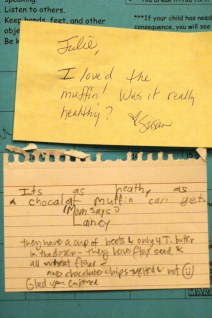 speaking.
Listen to others.
Keep hands, feet, and other
objec
Be k
***If your child has
consequence, you will see
Julie,
I loved the
muffin! Was it really
healthy?
Susan
Its as heath, as
a chocolat muffin can yet.
(Mom says)
Laney
they have a cup of beets & only 4 T. butter
in the dozen - They have flax seed &
all wheat flour -
chocolate chips
Glad you